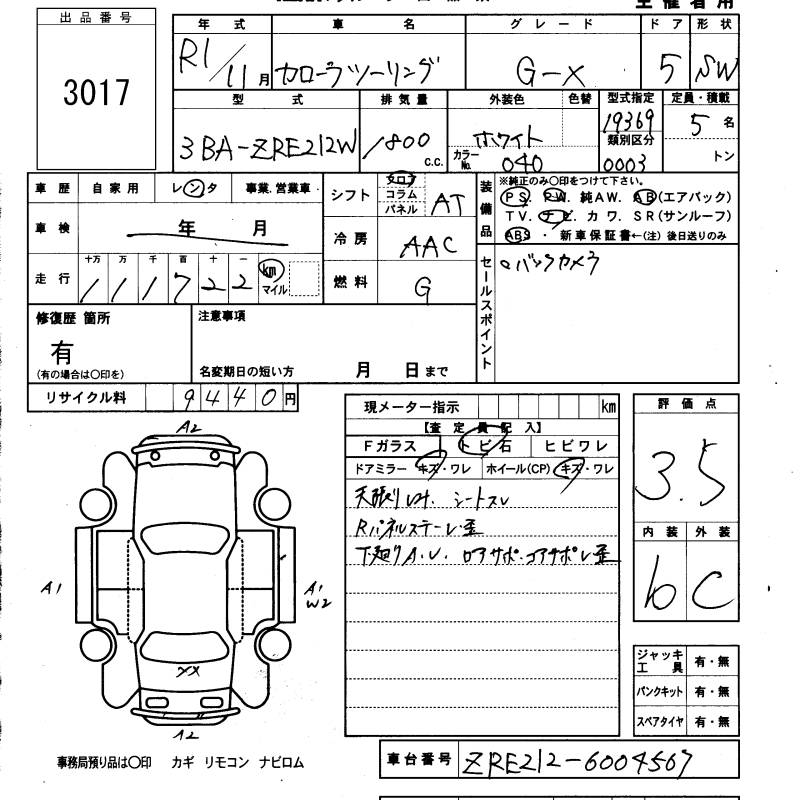 出品番号
3017
年式 車名 グレード ドア 形状
R1/11月 カローラツーリング G-X 5 SW
型式 排気量 外装色 色替 型式指定 定員・積載
3BA-ZRE212W 1800 c.c. ホワイト 19369 5名
カラーNo. 040 類別区分 0003 トン
車歴 自家用 レンタ 事業.営業車
シフト フロア コラム パネル AT
装備品
※純正のみ〇印をつけて下さい。
PS. PW. 純AW. AB(エアバック)
TV. ナビ. カワ. SR(サンルーフ)
ABS ・ 新車保証書←(注) 後日送りのみ
車検 年 月
冷房 AAC
走行 十万 万 千 百 十 一
111722 km マイル
燃料 G
セールスポイント
○バックカメラ
修復歴 箇所
有
(有の場合は〇印を)
注意事項
名変期日の短い方 月 日まで
リサイクル料 9440円
現メーター指示 km
【査定員記入】
Fガラス トビ石 ヒビワレ
ドアミラー キズ・ワレ ホイール(CP) キズ・ワレ
シートスレ
下廻りA.U. ロアサポ.コアサポレ歪
評価点
3.5
内装 外装
b C
A2
A1
A1
W2
XX
A2
ジャッキ工具 有・無
パンクキット 有・無
スペアタイヤ 有・無
事務局預り品は〇印 カギ リモコン ナビロム
車台番号 ZRE212-6004567